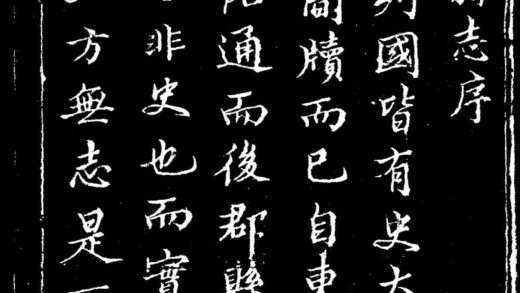 志序
列國皆有史大
簡牘而已自東
通而後郡縣
非史也而實
方無志是